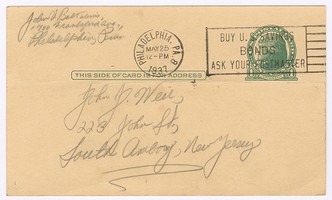 John
Philadelphia, Penn
PHILADELPHIA, PA.
MAY 25
12-PM
1937
BUY U.S. SAVINGS
BONDS
ASK YOUR POSTMASTER
THIS SIDE OF CARD IS FOR ADDRESS
John J. Weir
223 John St,
South Amboy, New Jersey